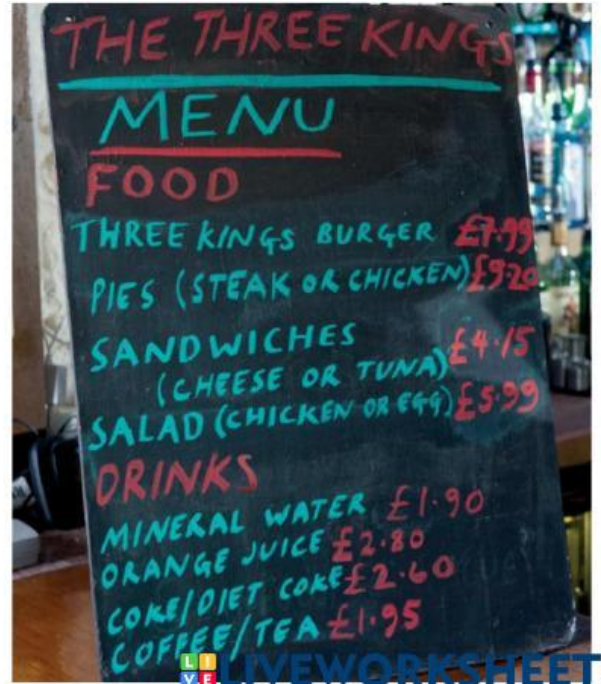 THE THREE KINGS
MENU
FOOD
THREE KINGS BURGER £7.99
PIES (STEAK OR CHICKEN) £9.20
SANDWICHES
(CHEESE OR TUNA) £4.15
SALAD (CHICKEN OR EGG) £5.99
DRINKS
MINERAL WATER £1.90
ORANGE JUICE £2.80
COKE/DIET COKE £2.60
COFFEE/TEA £1.95
LIVE LIVEWORKSHEET